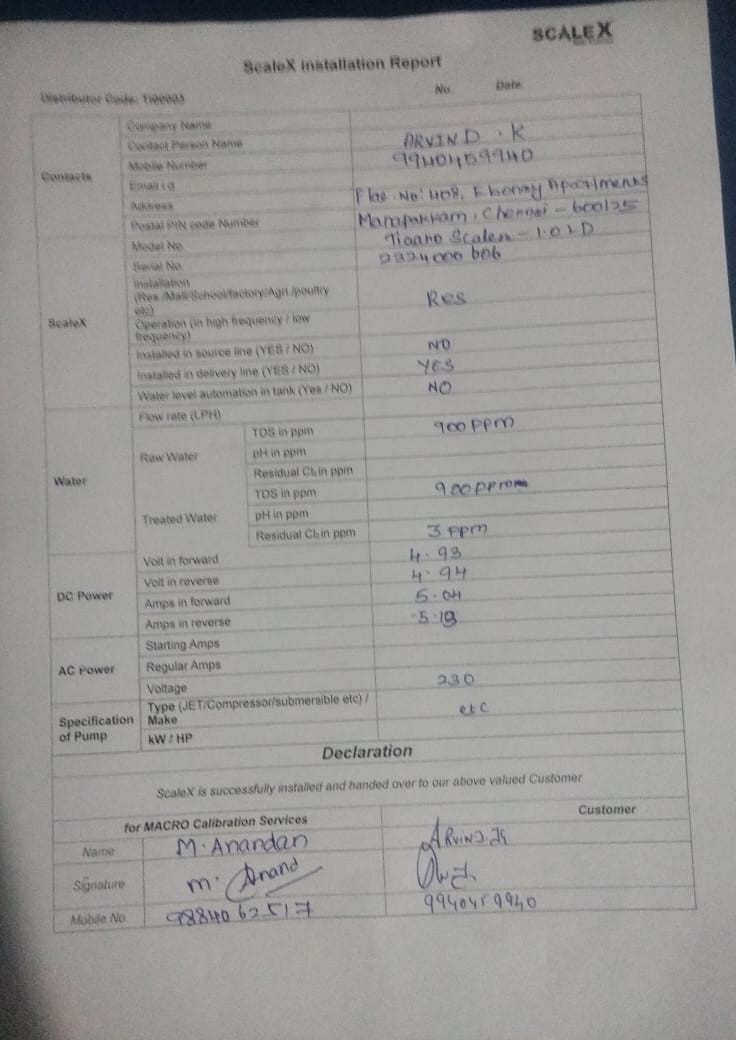 SCALEX
ScaleX Installation Report
No. Date
Distributor Code: TI00003
Contacts
Company Name
Contact Person Name ARVIND . K
Mobile Number 9940459940
Email i.d
Address Flat No: 408, Ebony Apartments
Postal PIN code Number Manapakkam, Chennai - 600125
ScaleX
Model No. Scalex - 1.0 LD
Serial No. 2324000 606
Installation
(Res /Mall/School/factory/Agri /poultry
etc) Res
Operation (in high frequency / low
frequency)
Installed in source line (YES / NO) NO
Installed in delivery line (YES / NO) YES
Water level automation in tank (Yes / NO) NO
Water
Flow rate (LPH)
Raw Water
TDS in ppm 900 PPM
pH in ppm
Residual Cl₂ in ppm
Treated Water
TDS in ppm 900 ppm
pH in ppm
Residual Cl₂ in ppm 3 ppm
DC Power
Volt in forward 4.93
Volt in reverse 4.94
Amps in forward 5.04
Amps in reverse -5.18
AC Power
Starting Amps
Regular Amps
Voltage 230
Specification
of Pump
Type (JET/Compressor/submersible etc) /
Make etc
kW / HP
Declaration
ScaleX is successfully installed and handed over to our above valued Customer
for MACRO Calibration Services Customer
Name M. Anandan ARVIND. K
Signature M. Anand
Mobile No 9884062517 9940459940